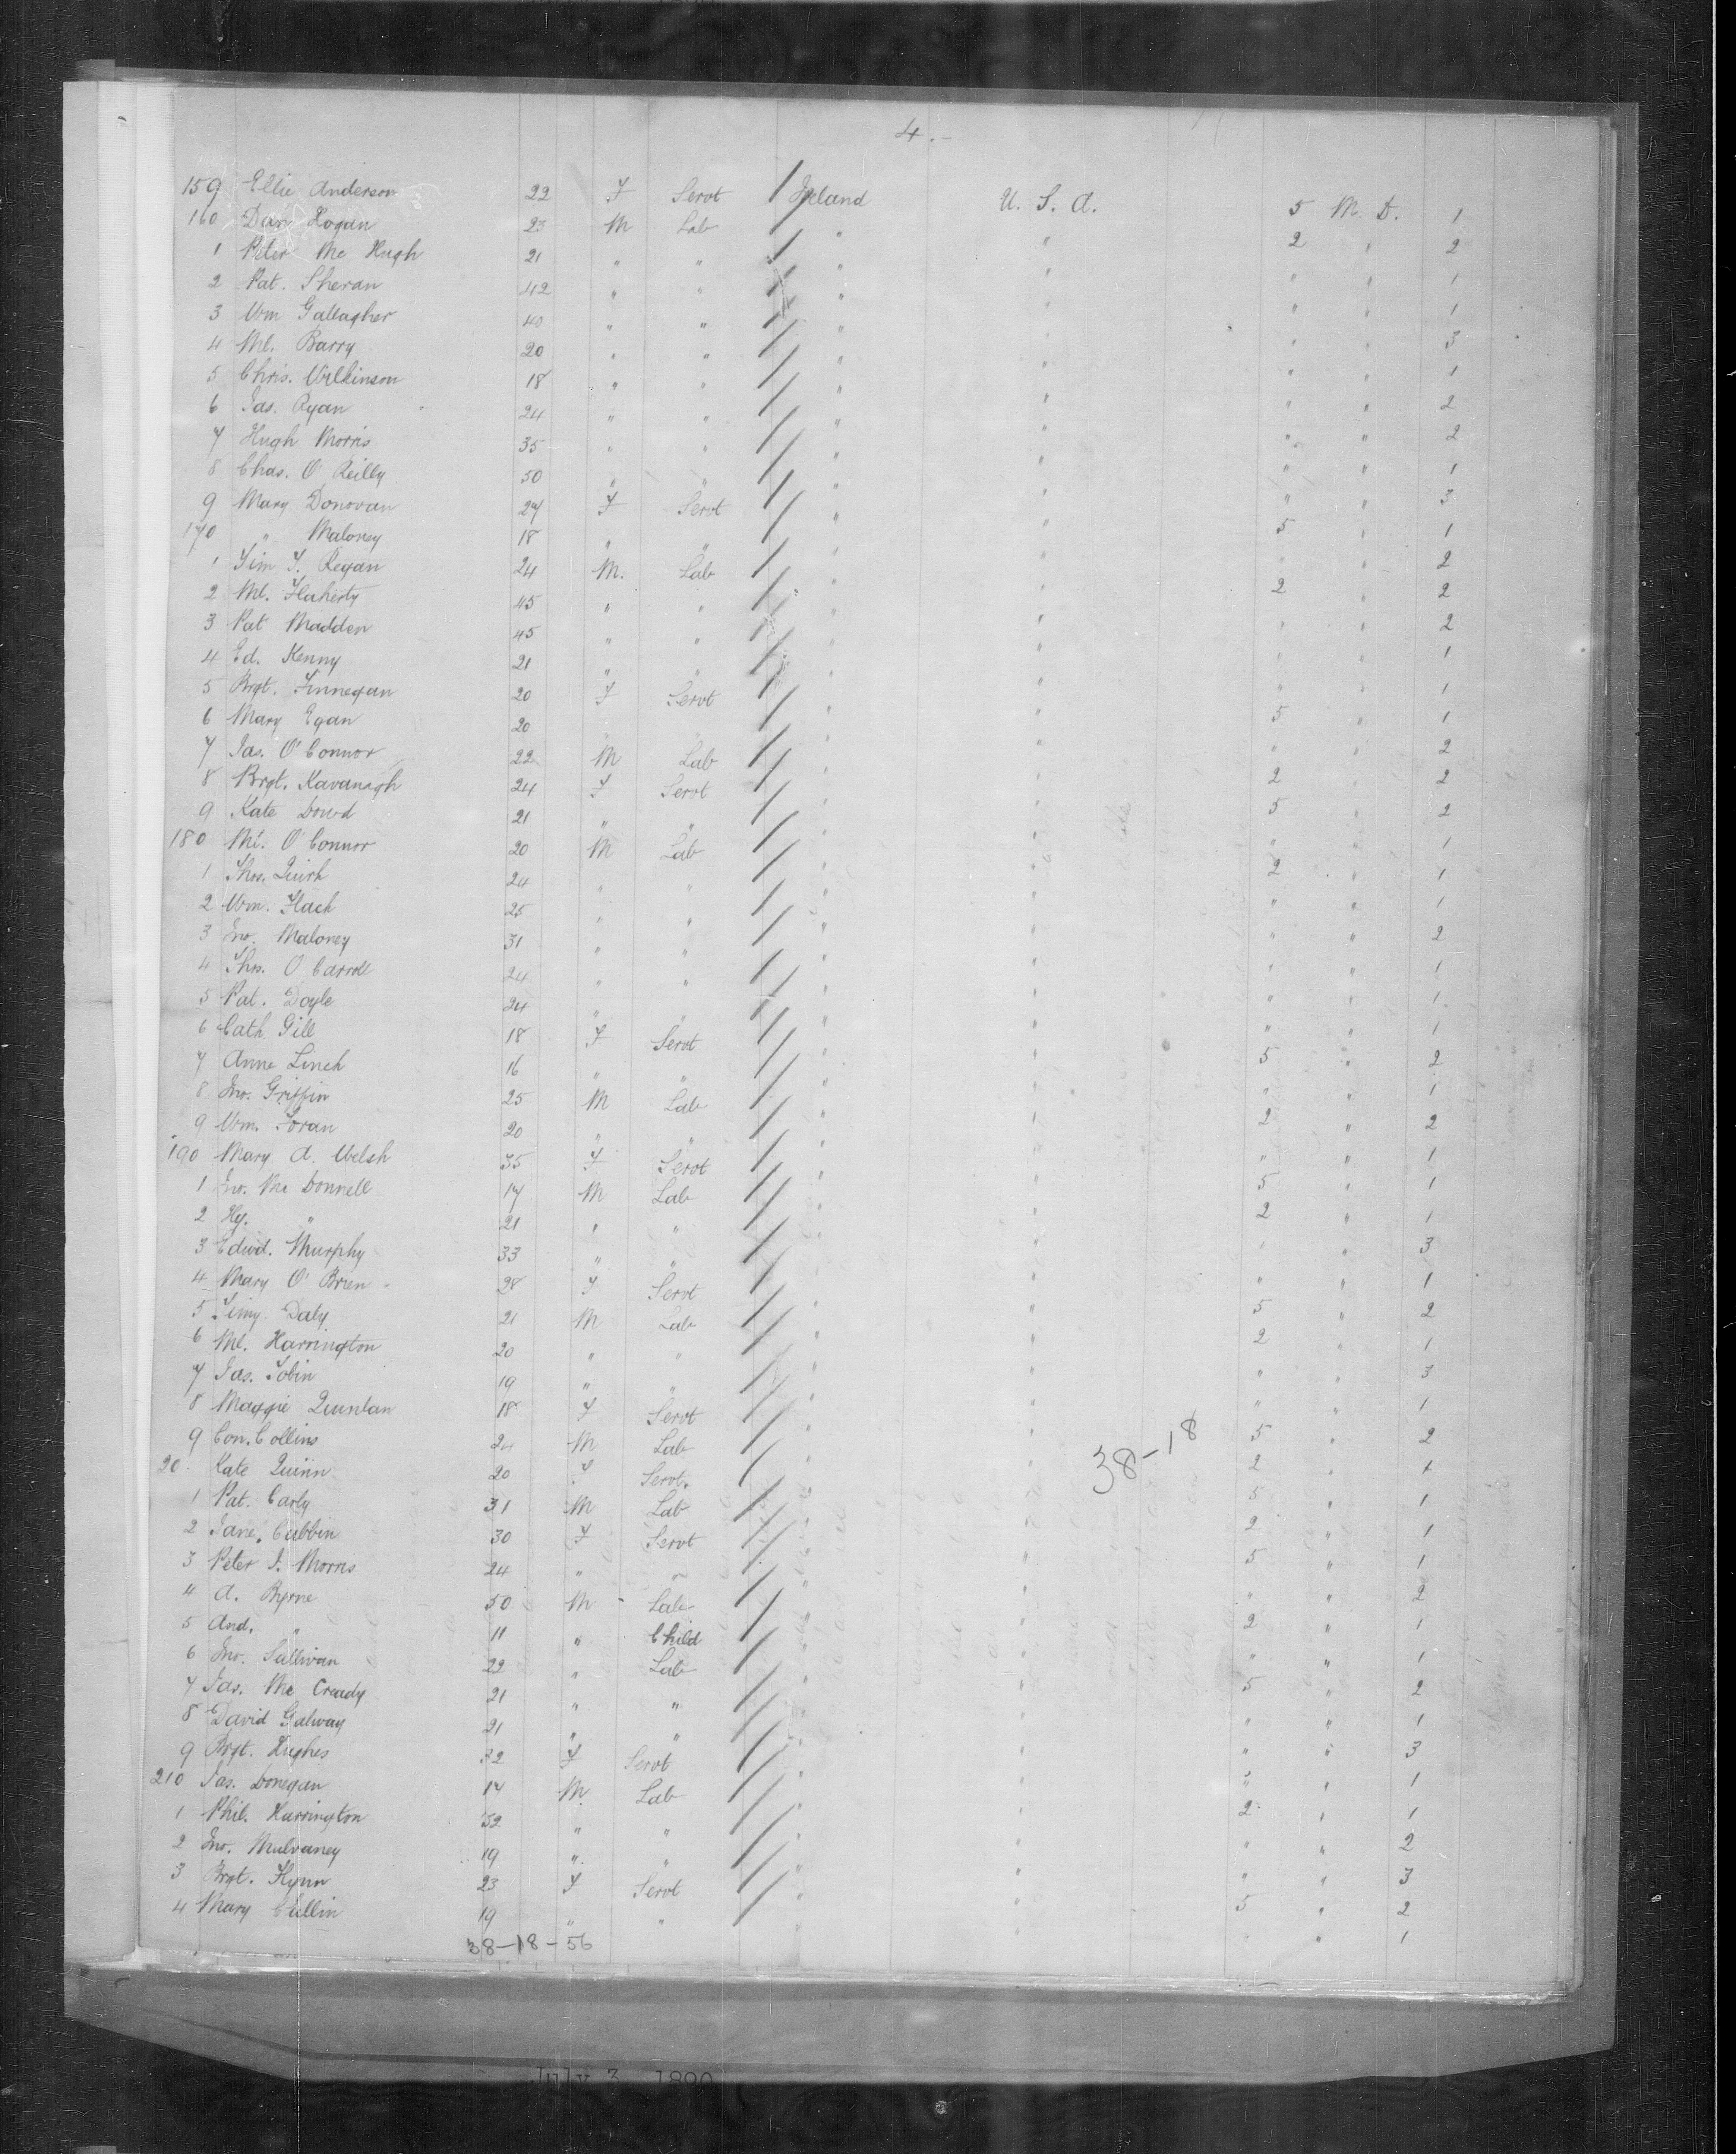 4.-
159 Ellie Anderson 22 F Servt Ireland U. S. A. 5 M. D. 1
160 Dan Hogan 23 M Lab " " 2 " 2
1 Peter Mc Hugh 21 " " " " " " 1
2 Pat. Sheran 42 " " " " " " 1
3 Wm Gallagher 40 " " " " " " 3
4 Ml. Barry 20 " " " " " " 1
5 Chris. Wilkinson 18 " " " " " " 2
6 Jas. Ryan 24 " " " " " " 2
7 Hugh Morris 35 " " " " " " 1
8 Chas. O'Reilly 50 " " " " " " 3
9 Mary Donovan 27 F Servt " " 5 " 1
170 " Maloney 18 " " " " " " 2
1 Tim J. Regan 24 M. Lab " " 2 " 2
2 Ml. Flaherty 45 " " " " " " 2
3 Pat Madden 45 " " " " " " 1
4 Ed. Kenny 21 " " " " " " 1
5 Brgt. Finnegan 20 F Servt " " 5 " 1
6 Mary Egan 20 " " " " " " 2
7 Jas. O'Connor 22 M Lab " " 2 " 2
8 Brgt. Kavanagh 24 F Servt " " 5 " 2
9 Kate Dowd 21 " " " " " " 1
180 Ml. O'Connor 20 M Lab " " 2 " 1
1 Thos. Quirk 24 " " " " " " 1
2 Wm. Flack 25 " " " " " " 2
3 Jno. Maloney 31 " " " " " " 1
4 Thos. O'Carroll 24 " " " " " " 1
5 Pat. Doyle 24 " " " " " " 1
6 Cath Gill 18 F Servt " " 5 " 2
7 Anne Linch 16 " " " " " " 1
8 Jno. Griffin 25 M Lab " " 2 " 2
9 Wm. Foran 20 " " " " " " 1
190 Mary A. Welsh 35 F Servt " " 5 " 1
1 Jno. Mc Donnell 17 M Lab " " 2 " 1
2 Hy. " 21 " " " " " " 3
3 Edwd. Murphy 33 " " " " " " 1
4 Mary O'Brien 28 F Servt " " 5 " 2
5 Timy Daly 21 M Lab " " 2 " 1
6 Ml. Harrington 20 " " " " " " 3
7 Jas. Tobin 19 " " " " " " 1
8 Maggie Quinlan 18 F Servt " " 5 " 2
9 Con. Collins 24 M Lab " " 38-18 2 " 1
20 Kate Quinn 20 F Servt. " " 5 " 1
1 Pat. Carly 31 M Lab " " 2 " 1
2 Jane Cubbin 30 F Servt " " 5 " 1
3 Peter J. Morris 24 " " " " " " 2
4 A. Byrne 50 M Lab " " 2 " 1
5 And. " 11 " Child " " " " 1
6 Jno. Sullivan 22 " Lab " " 5 " 2
7 Jas. Mc Cready 21 " " " " " " 1
8 David Galway 21 " " " " " " 3
9 Brgt. Hughes 32 F Servt " " " " 1
210 Jas. Donegan 17 M. Lab " " 2 " 1
1 Phil. Harrington 52 " " " " " " 2
2 Jno. Mulvaney 19 " " " " " " 3
3 Brgt. Flynn 23 F Servt " " 5 " 2
4 Mary Cullin 19 " " " " " " 1
38-18-56
July 3, 1890